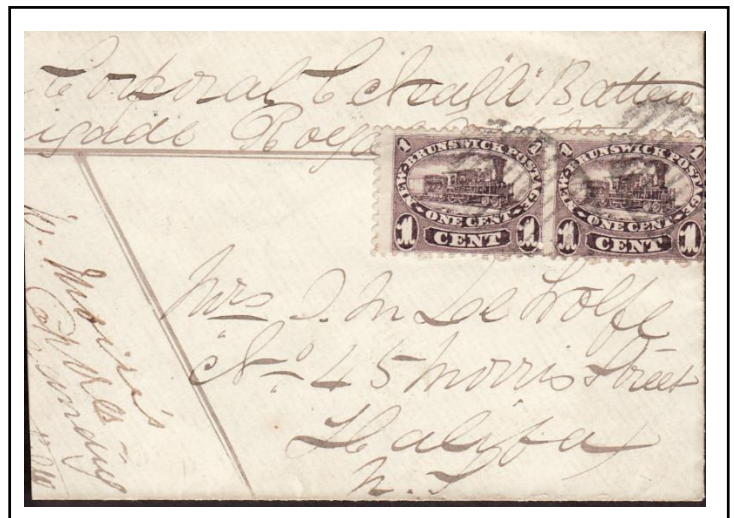 Corporal C Neal "A" Battery
Brigade Royal
1 NEW BRUNSWICK POSTAGE 1
ONE CENT
1 CENT 1
1 NEW BRUNSWICK POSTAGE 1
ONE CENT
1 CENT 1
Mrs J. M De Wolfe
No 45 Morris Street
Halifax
N. S
Capt